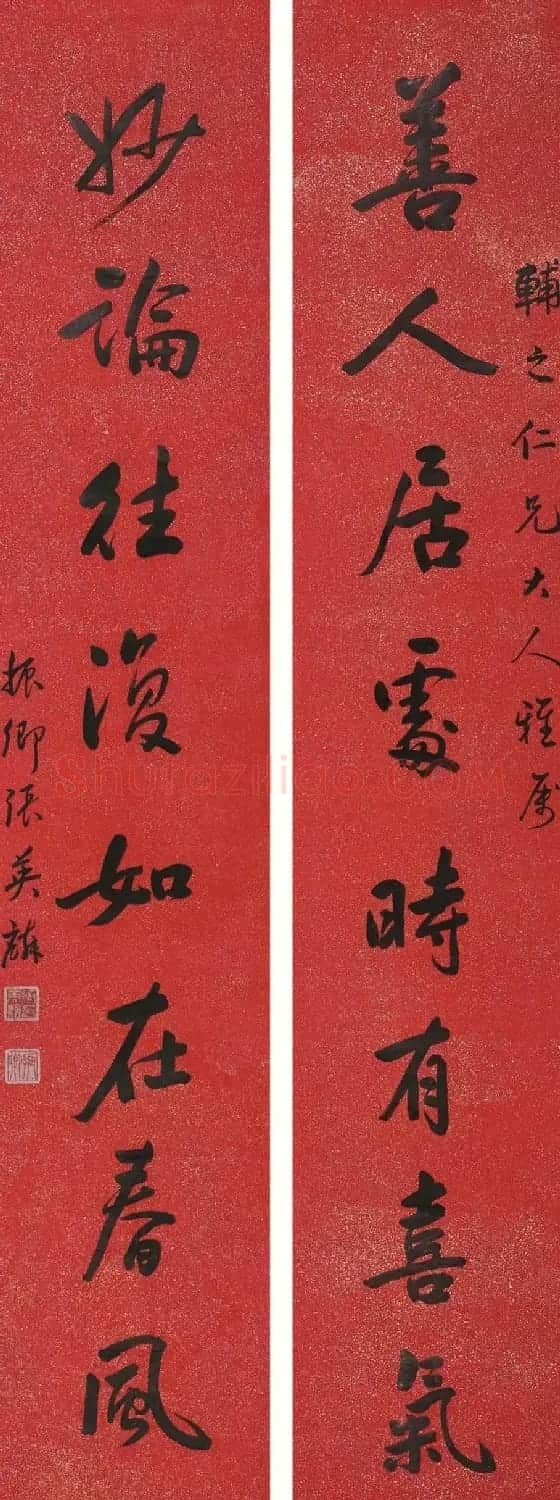 輔之仁兄大人雅屬
善人居處時有喜氣
妙論往復如在春風
振卿張英麟
Shufazhiao.COM